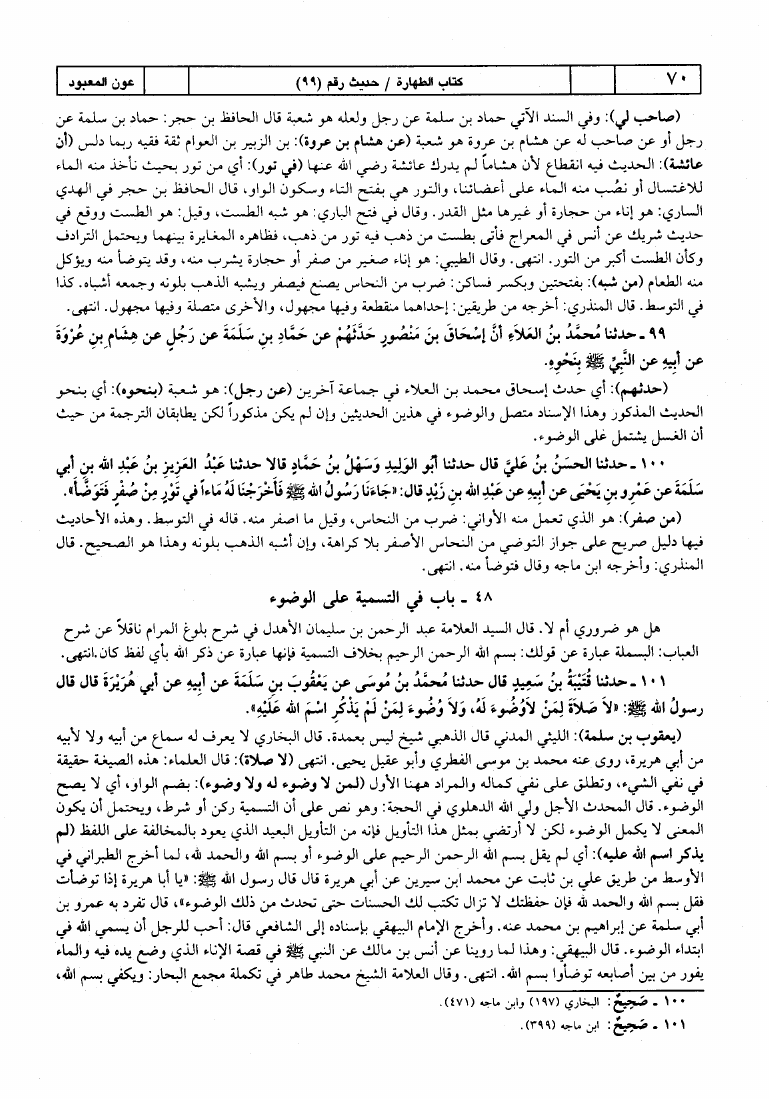 ٧٠ كتاب الطهارة / حديث رقم (٩٩) عون المعبود
(صاحب لي): وفي السند الآتي حماد بن سلمة عن رجل ولعله هو شعبة قال الحافظ بن حجر: حماد بن سلمة عن
رجل أو عن صاحب له عن هشام بن عروة هو شعبة (عن هشام بن عروة): بن الزبير بن العوام ثقة فقيه ربما دلس (أن
عائشة): الحديث فيه انقطاع لأن هشاماً لم يدرك عائشة رضي الله عنها (في تور): أي من تور بحيث نأخذ منه الماء
للاغتسال أو نصُب منه الماء على أعضائنا، والتور هي بفتح التاء وسكون الواو، قال الحافظ بن حجر في الهدي
الساري: هو إناء من حجارة أو غيرها مثل القدر. وقال في فتح الباري: هو شبه الطست، وقيل: هو الطست ووقع في
حديث شريك عن أنس في المعراج فأتى بطست من ذهب فيه تور من ذهب، فظاهره المغايرة بينهما ويحتمل الترادف
وكأن الطست أكبر من التور. انتهى. وقال الطيبي: هو إناء صغير من صفر أو حجارة يشرب منه، وقد يتوضأ منه ويؤكل
منه الطعام (من شبه): بفتحتين وبكسر فساكن: ضرب من النحاس يصنع فيصفر ويشبه الذهب بلونه وجمعه أشباه. كذا
في التوسط. قال المنذري: أخرجه من طريقين: إحداهما منقطعة وفيها مجهول، والأخرى متصلة وفيها مجهول. انتهى.
٩٩ ـ حدثنا مُحمَّدُ بنُ العَلاَءِ أنَّ إسْحَاقَ بنَ مَنْصُورٍ حَدَّثَهُمْ عن حَمَّادِ بنِ سَلَمَةَ عن رَجُلٍ عن هِشَامِ بنِ عُرْوَةَ
عن أبيهِ عن النَّبِيِّ ﷺ بِنَحْوِهِ.
(حدثهم): أي حدث إسحاق محمد بن العلاء في جماعة آخرين (عن رجل): هو شعبة (بنحوه): أي بنحو
الحديث المذكور وهذا الإسناد متصل والوضوء في هذين الحديثين وإن لم يكن مذكوراً لكن يطابقان الترجمة من حيث
أن الغسل يشتمل على الوضوء.
١٠٠ ـ حدثنا الحسَنُ بنُ عَليٍّ قال حدثنا أبُو الوَلِيدِ وَسَهْلُ بنُ حَمَّادٍ قالا حدثنا عَبْدُ العَزِيزِ بنُ عَبْدِ الله بنِ أبي
سَلَمَةَ عن عَمْرِو بنِ يَحْيَى عن أبِيهِ عن عَبْدِ الله بنِ زَيْدٍ قال: «جَاءَنَا رَسُولُ الله ﷺ فَأَخْرَجْنَا لَهُ مَاءاً في تَوْرٍ مِنْ صُفْرٍ فَتَوَضَّأَ».
(من صفر): هو الذي تعمل منه الأواني: ضرب من النحاس، وقيل ما اصفر منه. قاله في التوسط. وهذه الأحاديث
فيها دليل صريح على جواز التوضي من النحاس الأصفر بلا كراهة، وإن أشبه الذهب بلونه وهذا هو الصحيح. قال
المنذري: وأخرجه ابن ماجه وقال فتوضأ منه. انتهى.
٤٨ ـ باب في التسمية على الوضوء
هل هو ضروري أم لا. قال السيد العلامة عبد الرحمن بن سليمان الأهدل في شرح بلوغ المرام ناقلاً عن شرح
العباب: البسملة عبارة عن قولك: بسم الله الرحمن الرحيم بخلاف التسمية فإنها عبارة عن ذكر الله بأي لفظ كان. انتهى.
١٠١ ـ حدثنا قُتَيْبَةُ بنُ سَعِيدٍ قال حدثنا مُحمَّدُ بنُ مُوسَى عن يَعْقُوبَ بنِ سَلَمَةَ عن أبِيهِ عن أبي هُرَيْرَةَ قال قال
رسولُ الله ﷺ: «لاَ صَلاَةَ لِمَنْ لاَوُضُوءَ لَهُ، وَلاَ وُضُوءَ لِمَنْ لَمْ يَذْكُرِ اسْمَ الله عَلَيْهِ».
(يعقوب بن سلمة): الليثي المدني قال الذهبي شيخ ليس بعمدة. قال البخاري لا يعرف له سماع من أبيه ولا لأبيه
من أبي هريرة، روى عنه محمد بن موسى الفطري وأبو عقيل يحيى. انتهى (لا صلاة): قال العلماء: هذه الصيغة حقيقة
في نفي الشيء، وتطلق على نفي كماله والمراد ههنا الأول (لمن لا وضوء له ولا وضوء): بضم الواو، أي لا يصح
الوضوء. قال المحدث الأجل ولي الله الدهلوي في الحجة: وهو نص على أن التسمية ركن أو شرط، ويحتمل أن يكون
المعنى لا يكمل الوضوء لكن لا أرتضي بمثل هذا التأويل فإنه من التأويل البعيد الذي يعود بالمخالفة على اللفظ (لم
يذكر اسم الله عليه): أي لم يقل بسم الله الرحمن الرحيم على الوضوء أو بسم الله والحمد لله، لما أخرج الطبراني في
الأوسط من طريق علي بن ثابت عن محمد ابن سيرين عن أبي هريرة قال قال رسول الله ﷺ: «يا أبا هريرة إذا توضأت
فقل بسم الله والحمد لله فإن حفظتك لا تزال تكتب لك الحسنات حتى تحدث من ذلك الوضوء»، قال تفرد به عمرو بن
أبي سلمة عن إبراهيم بن محمد عنه. وأخرج الإمام البيهقي بإسناده إلى الشافعي قال: أحب للرجل أن يسمي الله في
ابتداء الوضوء. قال البيهقي: وهذا لما روينا عن أنس بن مالك عن النبي ﷺ في قصة الإناء الذي وضع يده فيه والماء
يفور من بين أصابعه توضأوا بسم الله. انتهى. وقال العلامة الشيخ محمد طاهر في تكملة مجمع البحار: ويكفي بسم الله،
١٠٠ ـ صَحِيحٌ: البخاري (١٩٧) وابن ماجه (٤٧١).
١٠١ ـ صَحِيحٌ: ابن ماجه (٣٩٩).